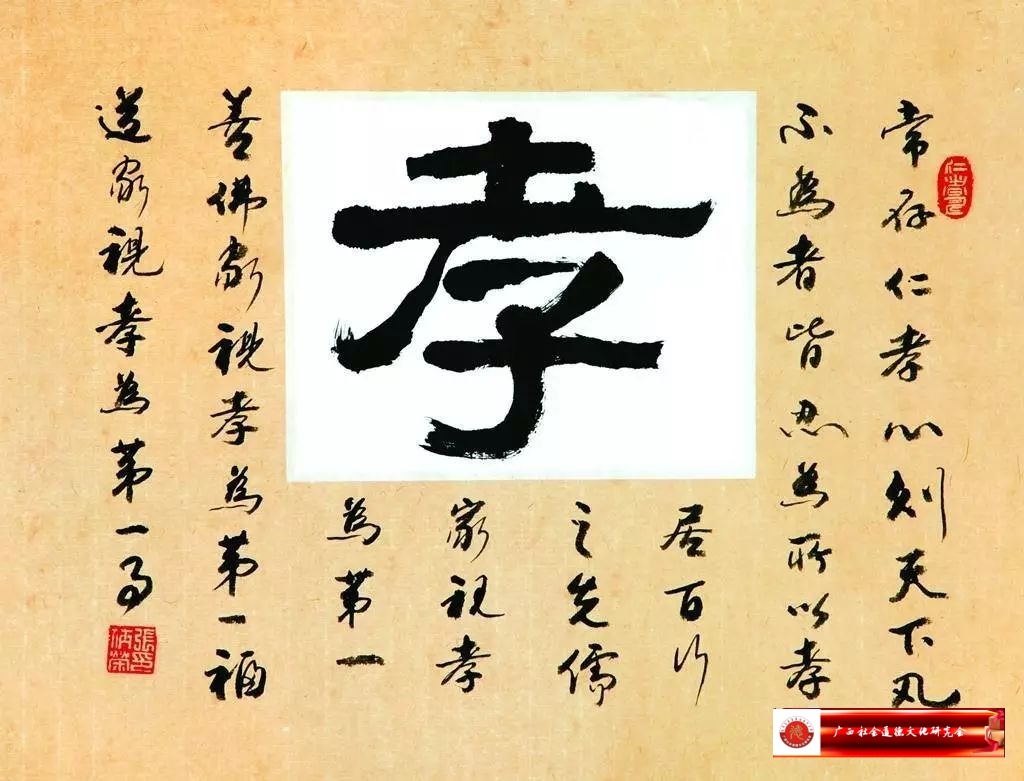 常存仁孝心則天下凡
不為者皆忍為所以孝
居百行
之先儒
家視孝
為第一
孝
善佛家視孝為第一福
道家視孝為第一
張印
炳榮
德
广西社会道德文化研究会